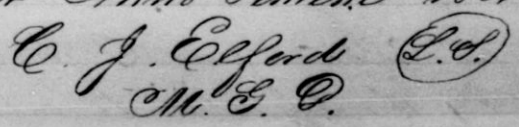 C. J. Elford L.S.
M. G. D.